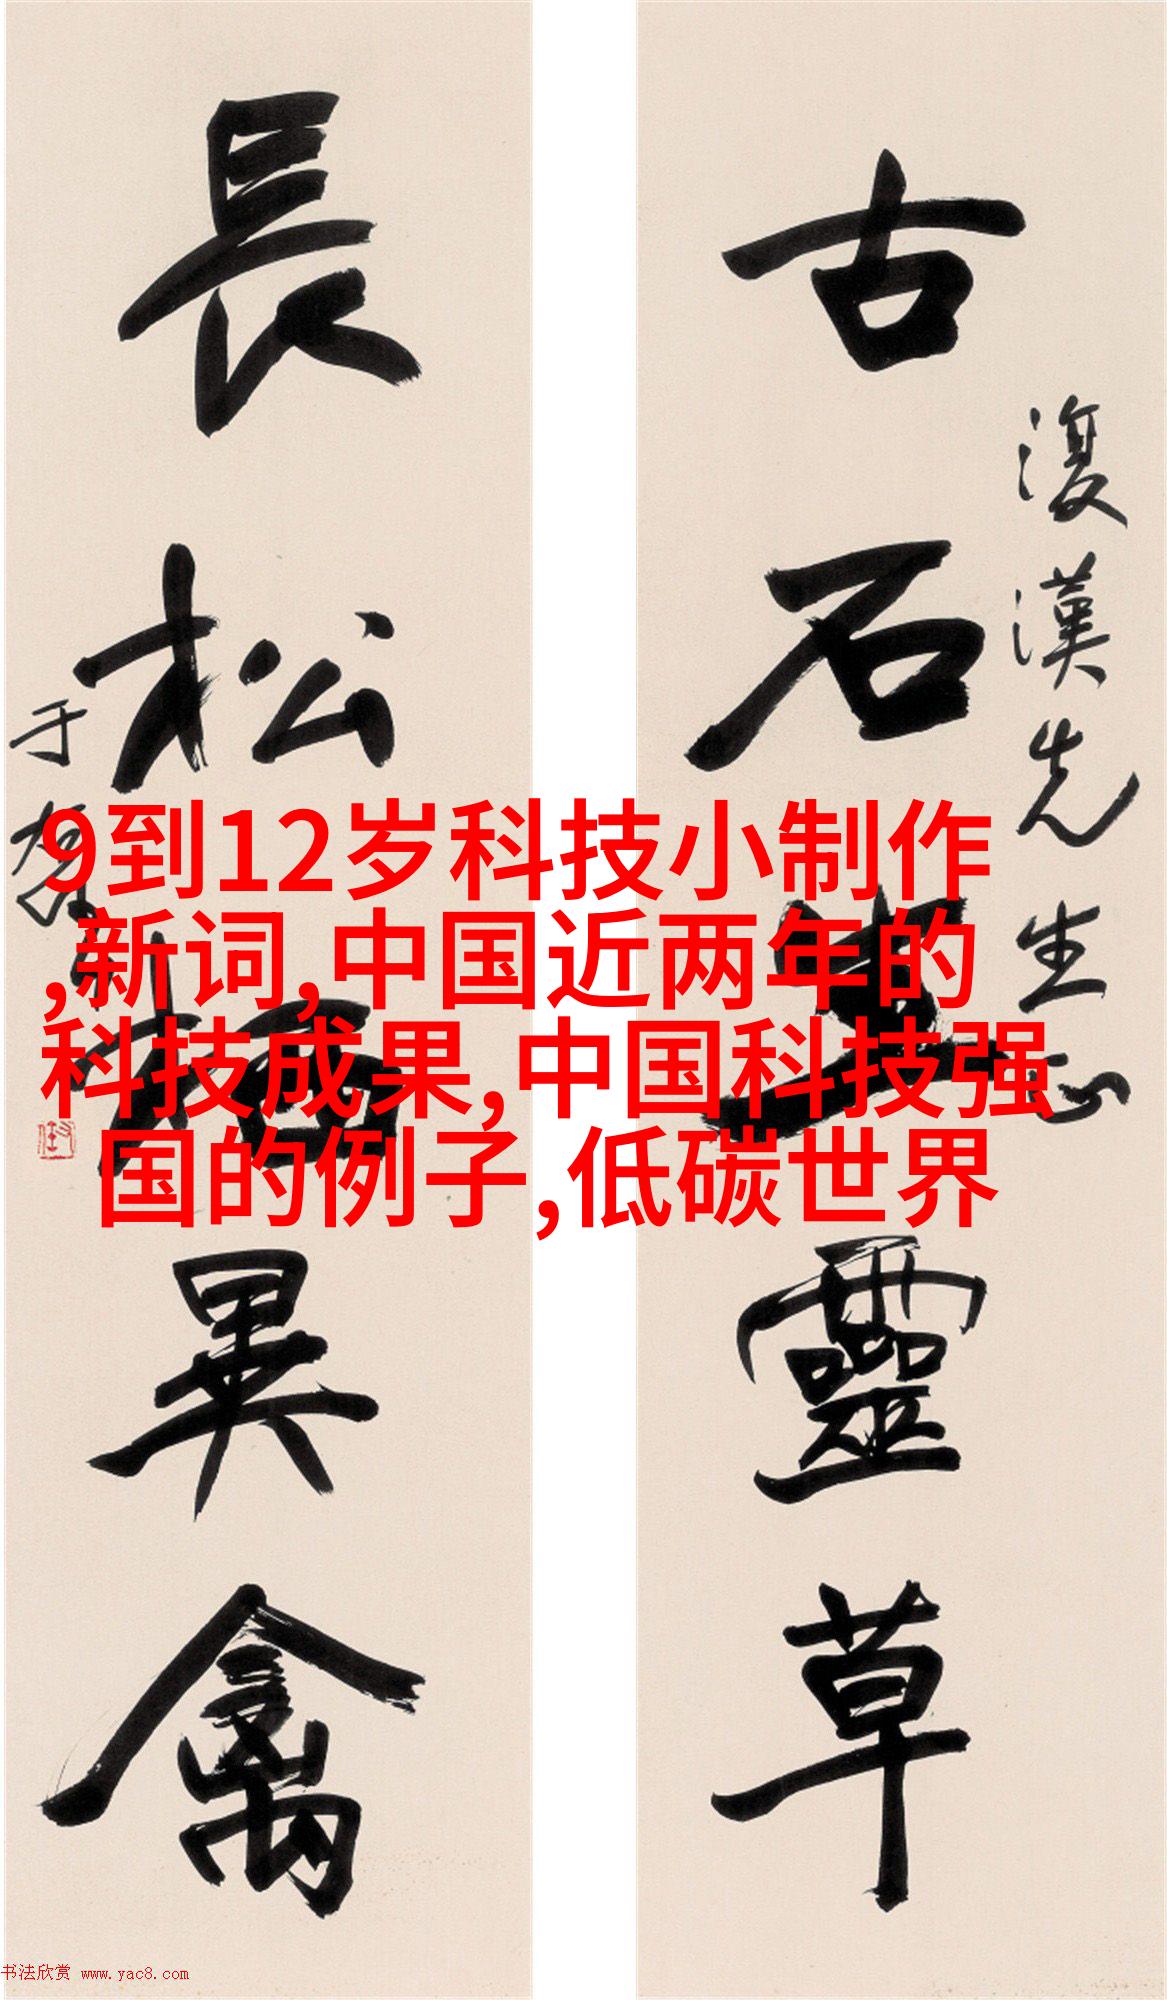 古石生靈草
復漢先生正
長松栖異禽
于右任
9到12岁科技小制作
,新词,中国近两年的
科技成果,中国科技强
国的例子,低碳世界
书法欣赏 www.yac8.com